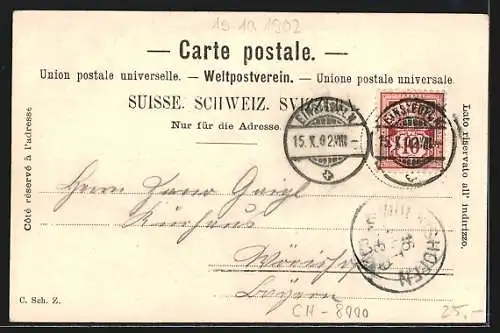 15-10 1902
— Carte postale. —
Union postale universelle. — Weltpostverein. — Unione postale universale.
SUISSE. SCHWEIZ. SVIZZERA.
Nur für die Adresse.
Côté réservé à l'adresse
Lato riservato all' indirizzo.
EINSIEDELN
15.X.02.VIII.–
EINSIEDELN
15.X.02.VIII.–
10
Herrn
Kurhaus
Wörishofen
Bayern
WÖRISHOFEN
C. Sch. Z.
CH - 8900
25.-